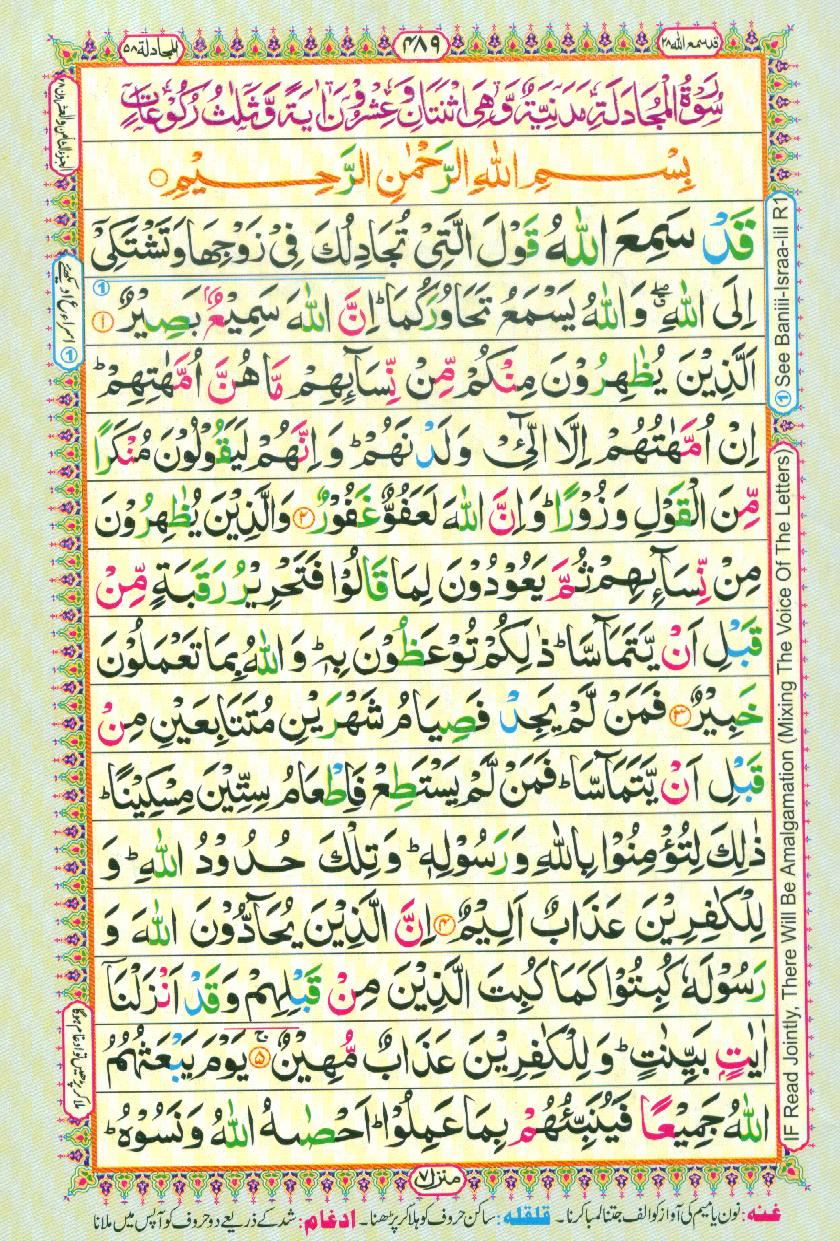 قد سمع الله ۲۸
۴۸۹
المجادلة ۵۸
سُوْرَةُ الْمُجَادَلَةِ مَدَنِيَّةٌ وَّهِىَ اثْنَتَانِ وَعِشْرُوْنَ اٰيَةً وَّثَلٰثُ رُكُوْعَاتٍ
بِسْمِ اللّٰهِ الرَّحْمٰنِ الرَّحِيْمِ ○
قَدْ سَمِعَ اللّٰهُ قَوْلَ الَّتِىْ تُجَادِلُكَ فِىْ زَوْجِهَا وَتَشْتَكِىْٓ
اِلَى اللّٰهِ ۖ وَاللّٰهُ يَسْمَعُ تَحَاوُرَكُمَا ؕ اِنَّ اللّٰهَ سَمِيْعٌۢ بَصِيْرٌ ۱
اَلَّذِيْنَ يُظٰهِرُوْنَ مِنْكُمْ مِّنْ نِّسَآىِٕهِمْ مَّا هُنَّ اُمَّهٰتِهِمْ ؕ
اِنْ اُمَّهٰتُهُمْ اِلَّا الّٰٓـِٔىْ وَلَدْنَهُمْ ؕ وَاِنَّهُمْ لَيَقُوْلُوْنَ مُنْكَرًا
مِّنَ الْقَوْلِ وَزُوْرًا ؕ وَاِنَّ اللّٰهَ لَعَفُوٌّ غَفُوْرٌ ۲ وَالَّذِيْنَ يُظٰهِرُوْنَ
مِنْ نِّسَآىِٕهِمْ ثُمَّ يَعُوْدُوْنَ لِمَا قَالُوْا فَتَحْرِيْرُ رَقَبَةٍ مِّنْ
قَبْلِ اَنْ يَّتَمَآسَّا ؕ ذٰلِكُمْ تُوْعَظُوْنَ بِهٖ ؕ وَاللّٰهُ بِمَا تَعْمَلُوْنَ
خَبِيْرٌ ۳ فَمَنْ لَّمْ يَجِدْ فَصِيَامُ شَهْرَيْنِ مُتَتَابِعَيْنِ مِنْ
قَبْلِ اَنْ يَّتَمَآسَّا ؕ فَمَنْ لَّمْ يَسْتَطِعْ فَاِطْعَامُ سِتِّيْنَ مِسْكِيْنًا ؕ
ذٰلِكَ لِتُؤْمِنُوْا بِاللّٰهِ وَرَسُوْلِهٖ ؕ وَتِلْكَ حُدُوْدُ اللّٰهِ ؕ وَ
لِلْكٰفِرِيْنَ عَذَابٌ اَلِيْمٌ ۴ اِنَّ الَّذِيْنَ يُحَآدُّوْنَ اللّٰهَ وَ
رَسُوْلَهٗ كُبِتُوْا كَمَا كُبِتَ الَّذِيْنَ مِنْ قَبْلِهِمْ وَقَدْ اَنْزَلْنَاۤ
اٰيٰتٍۭ بَيِّنٰتٍ ؕ وَلِلْكٰفِرِيْنَ عَذَابٌ مُّهِيْنٌ ۚ ۵ يَوْمَ يَبْعَثُهُمُ
اللّٰهُ جَمِيْعًا فَيُنَبِّئُهُمْ بِمَا عَمِلُوْا ؕ اَحْصٰىهُ اللّٰهُ وَنَسُوْهُ ؕ
منزل ۷
① See Baniii-Israa-Iil R1
IF Read Jointly, There Will Be Amalgamation (Mixing The Voice Of The Letters)
الجزء الثامن والعشرون ۲۸
غنه: نون یا میم کی آواز کو الف جتنا لمبا کرنا۔ قلقله: ساکن حروف کو ہلا کر پڑھنا۔ ادغام: شد کے ذریعے دو حروف کو آپس میں ملانا